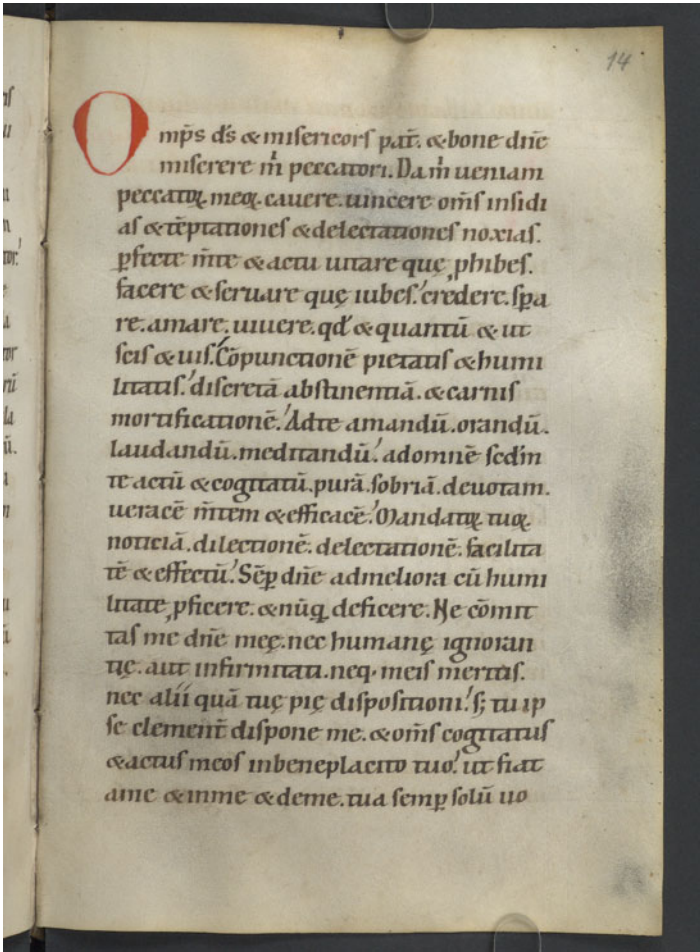 14
Omp̄s d̄s & misericorſ pat̄. & bone dn̄e
miſerere m̓ peccatori. Da m̓ ueniam
peccatoꝝ meoꝝ. cauere. uincere om̄ſ inſidi
aſ & tēptationeſ & delectationeſ noxiaſ.
ꝑfecte m̄te & actu uitare quę ꝓhibeſ.
facere & ſeruare quę iubeſ. credere. ſꝑa
re. amare. uiuere. qd̓ & quantū & ut
ſciſ & uiſ. Cōpunctionē pietatiſ & humi
litatiſ. diſcretā abſtinentiā. & carniſ
mortificationē. Ad te amandū. orandū.
laudandū. meditandū. ad omnē ſcd̓m
te actū & cogitatū. purā. ſobriā. deuotam.
ueracē m̄tem & efficacē. Mandatoꝝ tuoꝝ
noticiā. dilectionē. delectationē. facilita
tē & effectū. Sēꝑ dn̄e ad meliora cū humi
litate ꝓficere. & nūꝗ deficere. Ne cōmit
taſ me dn̄e meę. nec humanę ignoran
tię. aut infirmitati. neq; meiſ meritiſ.
nec alii quā tuę pię diſpoſitioni. ſ; tu ip
ſe clement̄ diſpone me. & om̄ſ cogitatuſ
& actuſ meoſ in beneplacito tuo. ut fiat
a me & in me & de me. tua ſemꝑ ſolū uo